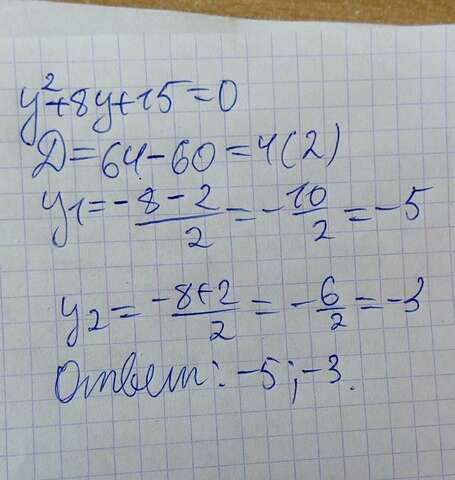 y²+8y+15=0
D=64-60=4(2)
y₁=-8-2/2=-10/2=-5
y₂=-8+2/2=-6/2=-3
Ответ: -5;-3.